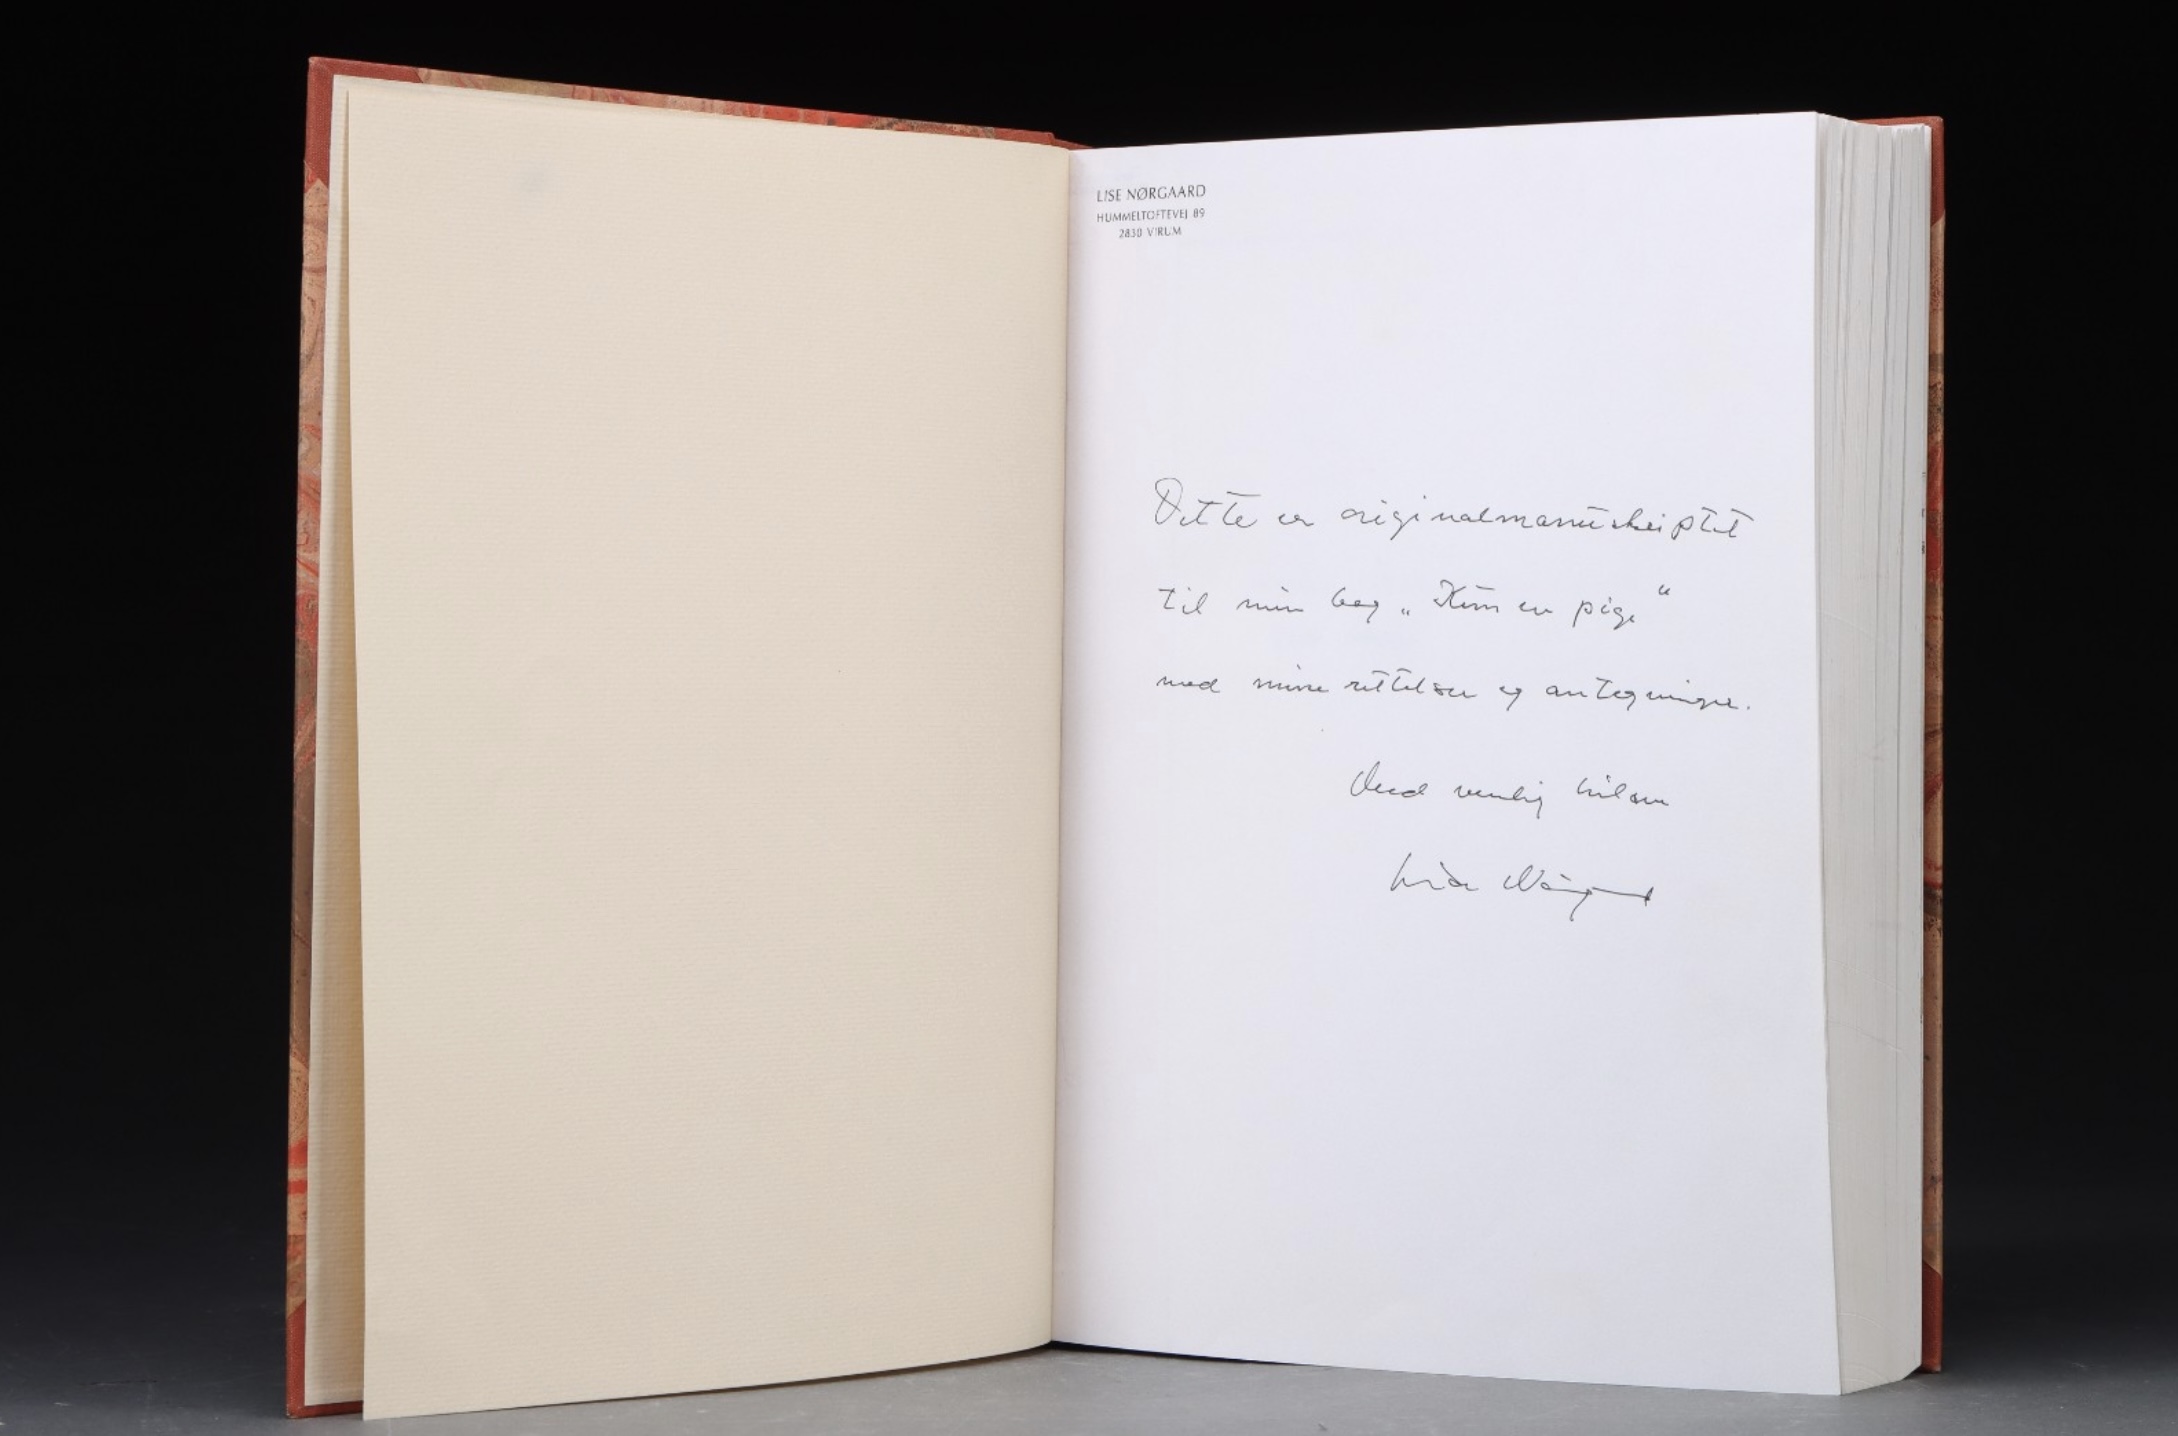 LISE NØRGAARD
HUMMELTOFTEVEJ 89
2830 VIRUM
Dette er originalmanuskriptet
til min bog „Kun en pige“
med mine rettelser og antegninger.
Med venlig hilsen
Lise Nørgaard